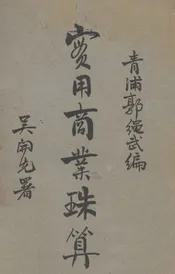 青浦郭繩武編
實用商業珠算
吴開先署